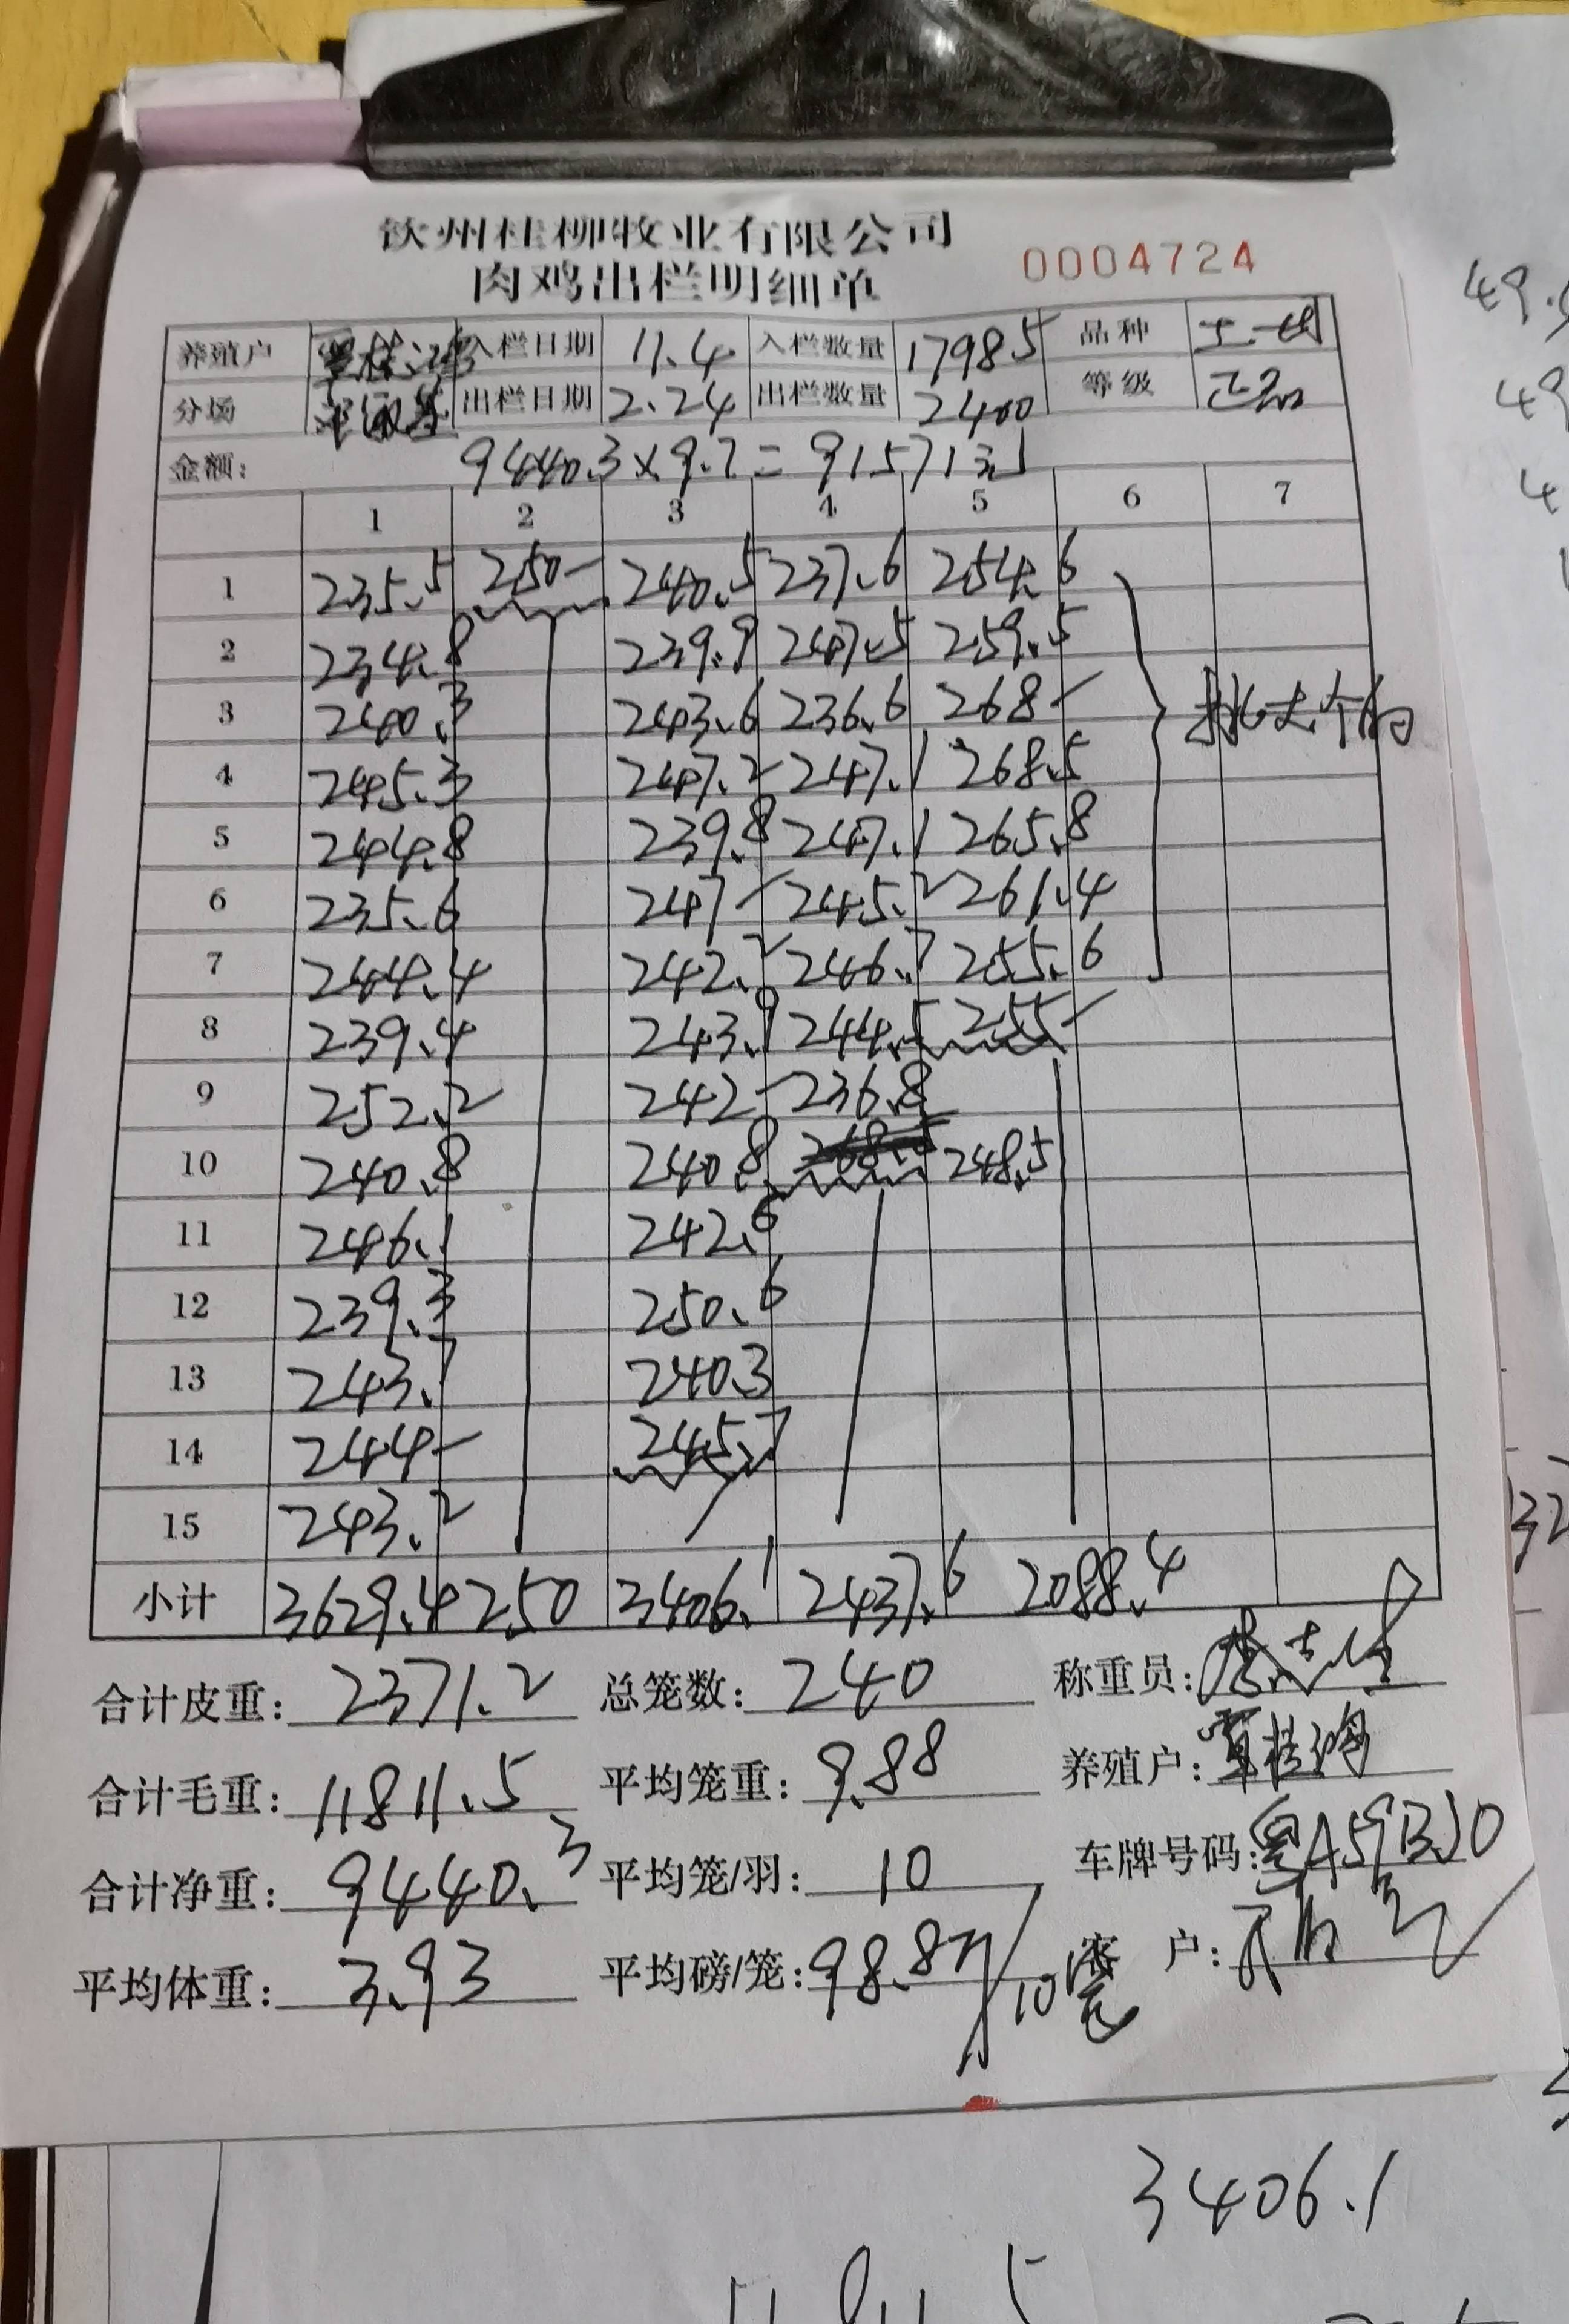 钦州桂柳牧业有限公司
肉鸡出栏明细单 0004724
养殖户 入栏日期 11.4 入栏数量 17985 品种 土一
分场 出栏日期 2.24 出栏数量 2400 等级 正品
金额: 9440.3×9.7=91571元
1 2 3 4 5 6 7
1 235.5 250- 240.5 237.6 254.6
2 234.8 239.9 247.5 259.5
3 240.3 243.6 236.6 268- 挑大个的
4 245.3 247.2 247.1 268.5
5 244.8 239.8 247.1 265.8
6 235.6 247- 245.2 261.4
7 244.4 242.2 246.7 255.6
8 239.4 243.9 244.5 255-
9 252.2 242- 236.8
10 240.8 240.8 248.5
11 246.1 242.6
12 239.3 250.6
13 243.7 240.3
14 244- 245.7
15 243.2
小计 3629.4 250 3406.1 2437.6 2088.4
合计皮重: 2371.2 总笼数: 240 称重员:
合计毛重: 11811.5 平均笼重: 9.88 养殖户: 覃桂鸿
合计净重: 9440.3 平均笼/羽: 10 车牌号码: 粤A59BJ0
平均体重: 3.93 平均磅/笼: 98.87/10笼 客户:
3406.1